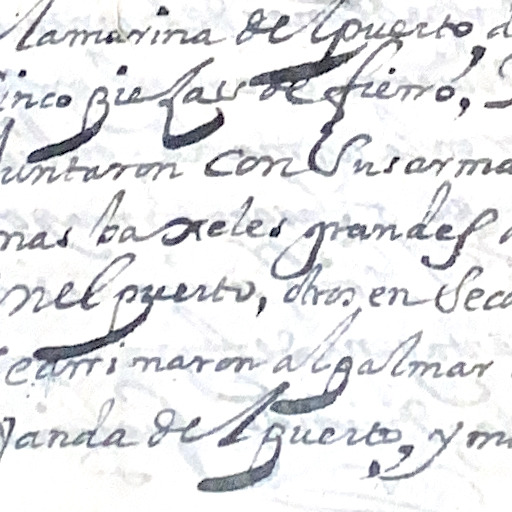 lamarina del puerto, d
inco piesas de fierro,
juntaron con Susarma
mas baxeles grandes
nel puerto, otros en Seco
earrimaron al palmar
anda del puerto, y m